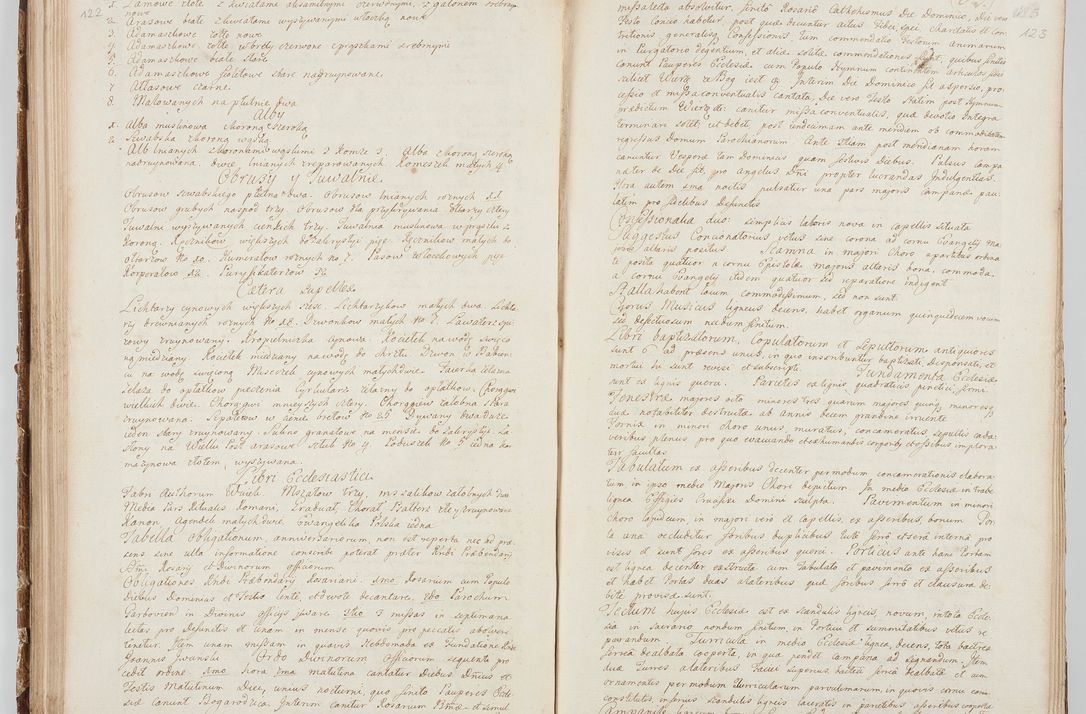 122
1. Lamowe złote z kwiatami aksamitnymi czerwonymi, z galonem srebrnym
nowe
2. Atłasowe białe z kwiatami wyszywanymi włoczką nowe
3. Adamaszkowe żołte nowe
4. Adamaszkowe żołte w brety czerwone z prążkami srebrnymi
5. Adamaszkowe białe stare
6. Adamaszkowe fioletowe stare nadruynowane.
7 Atłasowe czarne.
8. Malowanych na płutnie dwa
Alby
1. Alba muslinowa z koroną szeroką
2. Szwabska z koroną wąską
Alb lnianych z koronami wąskimi z Komze 3. Alba z koroną szeroką
nadruynowana. Dwie lnianych zreparowanych. Komeszek małych 4
Obrusy y Tuwalnie
Obrusow szwabskiego płutna dwa. Obrusow lnianych rożnych 11
Obrusow grubych naspod trzy. Obrusow dla przykrywania Ołtarzy cztery
Tuwalni wyszywanych cienkich trzy. Tuwalnia muslinowa w prążki z
Koroną. Ręcznikow większych do zakrystyi pięć. Ręcznikow małych do
Ołtarzow No 10. Humerałow rożnych no 7. Pasow włoczkowych pięć
Korporałow 12. Puryfikaterzow 32
Cetera supellex
Lichtarzy cynowych większych sześć. Lichtarzykow małych dwa. Lichta-
rzy drewnianych rożnych No 18. Dzwonkow małych No 7. Lawaterz spi-
żowy zruynowany. Kropielniczka cynowa. Kociełek na wodę święco-
ną miedziany. Kociełek miedziany na wodę do chrztu. Dzwon w Babien-
cu na wodę święconą Miseczek cynowych małych dwie. Faierka żelazna
Żelaza do opłatkow pieczenia Cyrkularz żelazny do opłatkow. Chorągwi
wielkich dwie. Chorągwi mnieyszych cztery Chorągiew załobna stara
zruynowana. Szpalerow w sienie bretow No 25. Dywany dwa duże
ieden stary zruynowany. Sukno granatowe na mensie. do Zakrystyi Za
słony na Wielki Post arasowe sztuk No 4. Poduszek No 5 iedna ka-
mazynowa złotem, wyszywana.
Libri Ecclesiastici
Fabri Authorum Wuieki Mszałow trzy, mszalikow załobnych dwa
Media Pars Ritualis Romani, Graduał, Chorał Psałterz złe y zruynowane
Kanon, Agendek małych dwie. Ewangeliia Polska iedna
Tabella Obligationum, anniversariorum, non est reperta nec ad præ-
sens sine ulla informatione conscribi poterat præter Rndi Præbendarij
SSmi Rosarij et Divinorum officiorum
Obligationes Rndi Præbendarij Rosariani. 1mo Rosarium cum Populo
Diebus Dominicis et Festis lentè, et devote decantare, 2do Parochum
Parkovien in Divinis officijs juvare. 3tio 3 missas in septimana
lectas pro defunctis et unam in mense quovis pro peccatis absolvere
tenetur. Item unam missam in quavis Hebdomada ex Fundatione Rndi
Joannis Jwanski Ordo Divinorum officiorum sequenti pro-
cedit ordine 1mo Hora 6ma matutina cantatur Diebus Dnicis et
Festis Matutinum Dei, unius nocturni, quo finito Pauperes Eccle-
siæ canunt Bogarodzica Interim canitur Rosarium BVMæ et simul
123
missa lecta absolvitur, finito Rosario Cathechismus Die Dominico, Die vero
Festo Concio habetur, post quæ dicuntur actus Fidei, spei, Charitatis et Con-
tritionis, generalisq Confessionis. Tum commendatio Festorum animarum
in Purgatorio degentium, et aliæ solitæ commendationes fiunt, quibus finitis
canunt Pauperes Ecclesiæ cum Populo Hymnum continentem articulos fidei
scilicet Wierzę w Bog iest q Interim Die Dominico fit aspersio, pro-
cessio et missa conventualis cantata, Die vero Festo statim post Hymnum
prædictum Wierzę etc: canitur missa conventualis, quæ devotio Integra
terminari solet, ut debet, post undecimam ante meridiem ob commoditatem
regressus domum Parochianorum Ante 3tiam post meridianam horam
canuntur Vesperæ tam Dominicis quam festivis Diebus. Pulsus Campa-
næ ter de Die fit, pro Angelus Dni propter lucrandas Indulgentias.
Hora autem 3ma noctis pulsatur una pars majoris Campanæ pau-
latim pro fidelibus defunctis
Confessionalia duo: simplicis laboris nova in capellis situata
Suggestus Concionatorius vetus sine corona ad cornu Evangelij ma-
joris altaris positus. Scamna in majori Choro a partibus ordina-
te posita quatuor a cornu Epistolæ majoris altaris bona, commoda.
a cornu Evangelij itidem quatuor sed reparatione indigent
Stalla habent locum commodissimum, sed non sunt.
Chorus Musicus ligneus decens, habet organum quinquedecim vocum
sed defectuosum necdum finitum.
Libri baptizatorum, Copulatorum et sepultorum antiquiores
sunt et ad præsens unus, in quo inscribuntur baptizati Desponsati, et
mortui hi sunt revisi et subscripti. Fundamenta Ecclesiæ
sunt ex lignis querci. Parietes ex lignis quadratis pineticis firmi
Fenestræ majores octo minores tres quarum majores quinq minor esq
duæ notabiliter destructa ab annis decem grandine irruente
Fornix in minori choro unus, muratus, concameratus, sepultis cada-
veribus plenus pro quo evacuando et exhumandis corporibus et ossibus implora-
tur facultas
Tabulatum ex asseribus decenter per modum concamerationis elabora-
tum, in ipso medio Majoris Chori depictum. In medio Ecclesiæ in trabe
lignea Effigies Crucifixi Domini sculpta. Pavimentum in minori
choro lapideum in majori verò et capellis, ex asseribus, bonum Por-
ta una occluditur foribus duplicibus tutè serrò et sera internâ pro-
visis et sunt fores ex asseribus querci. Porticus ante hanc Portam
est lignea decenter exstructa cum Tabulato et pavimento ex asseribus
et habet Portas duas a lateribus quæ foribus ferrò et clausura de-
bitè provisæ sunt.
Tectum hujus Ecclesiæ est ex scandulis ligneis, novum, in tota Eccle-
sia in sacrario nondum finitum in Porticu et summitatibus vetus re-
parandum. Turricula in medio Ecclesiæ lignea, decens, tota bractea
ferrea dealbata cooperta, in qua pendet campana ad signandum. Item
duæ Turres a lateribus Faciei superius bractea ferrea dealbata et cum
ornamentis per modum Turricularum parvulinarum in quovis cornu com-
constitutis, inferius scandulis ligneis laceratis in parietibus asseribus cooperta